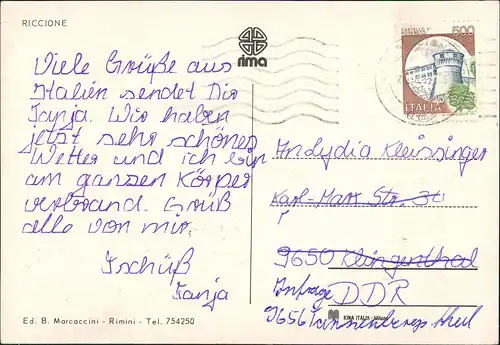 RICCIONE
rima
500
ITALIA
Viele Grüße aus
Italien sendet Dir
Tanja. Wir haben
jetzt sehr schönes
Wetter und ich bin
am ganzen Körper
verbrand. Grüß
alle von mir.
Tschüß
Tanja
Andydia Kleissinger
Karl-Marx Str.
9650 Klingenthal
Anfrage DDR
9656
Ed. B. Marcaccini - Rimini - Tel. 754250
KINA ITALIA - Milano